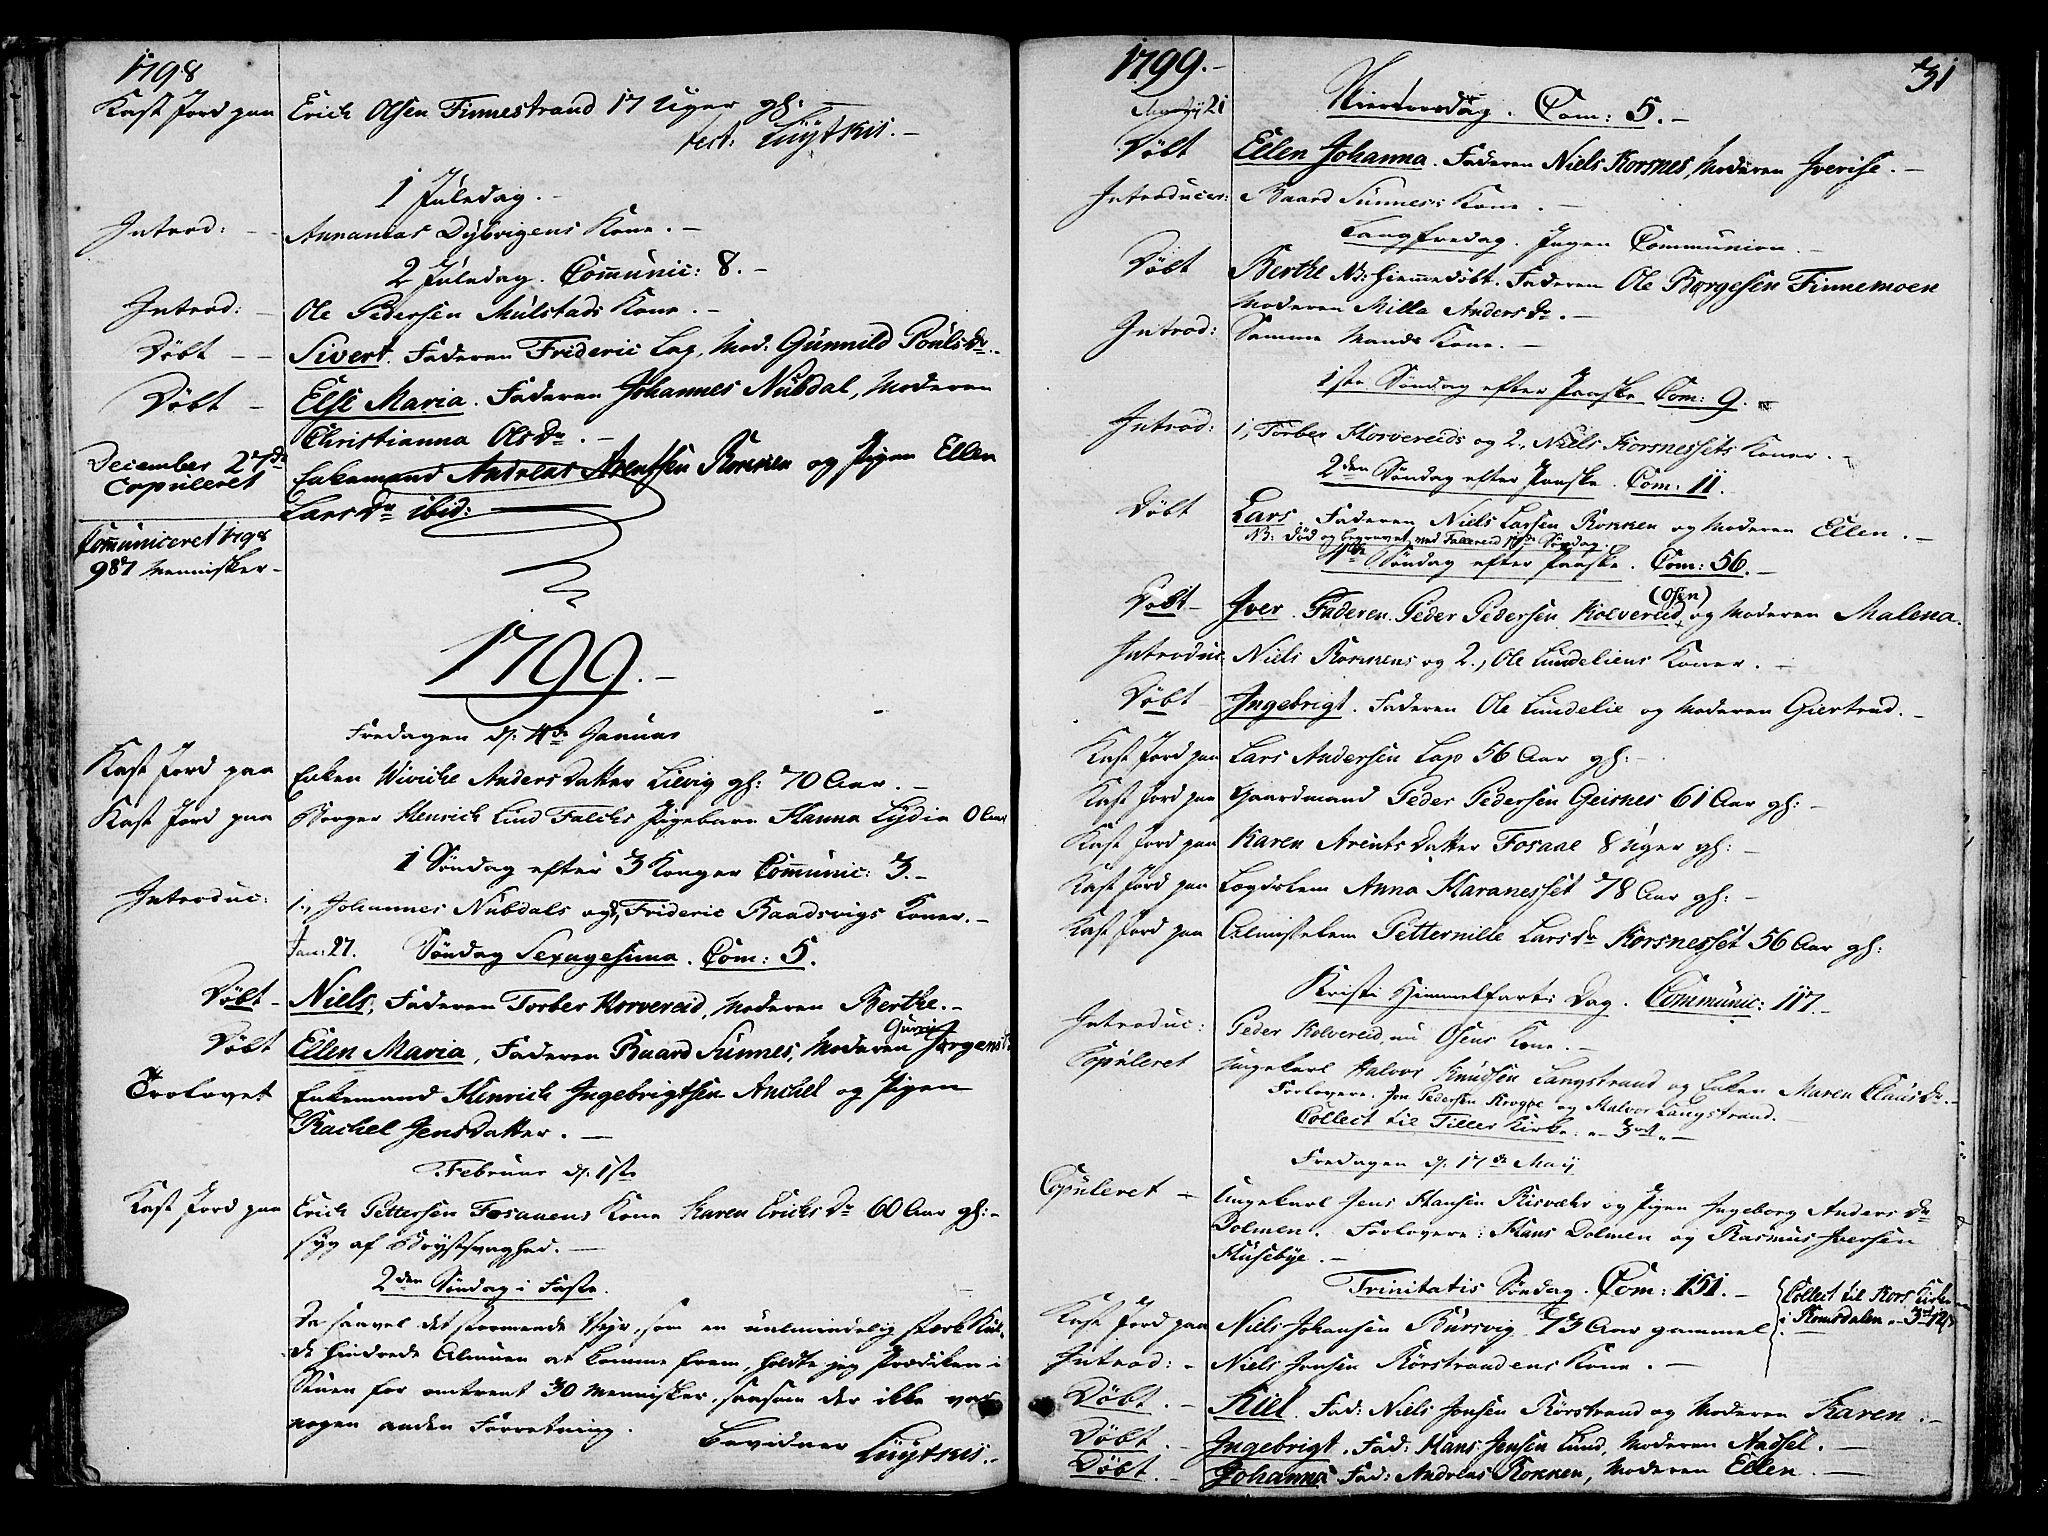 1798
Kast Jord paa Erich Olsen Finnestrand 17 Uger gl:
test: Lüÿtkis.-
1 Juledag.-
Introd: - Annanias Dÿbvigens Kone.-
2 Juledag. Comünic: 8.-
Introd: - Ole Pedersen Mülstads Kone.-
Døbt - - Sivert. Faderen Frideric Lap, Mod: Günnild Poülsdr.-
Døbt - Else Maria. Faderen Johannes Nübdal, Moderen
Christianna Olsdr.-
December 27de Enkemand Andreas Arentsen Rokken og Pigen Ellen
Copuleret Larsdr ibid:
Communiceret 1798
987 Mennisker-
1799.-
Fredagen d: 4de Januar
Kast Jord paa Enken Wiviche Anders Datter Lilvig gl: 70 Aar.-
Kast Jord paa Borger Henrich Lind Falchs Pigebarn Hanna Lÿdia 0 Aar
1 Søndag efter 3 Konger Comunic: 3.-
Introduc: 1., Johannes Nübdals og 2, Frideric Raadsvigs Koner.-
Jan: 27. Søndag Sexagesima. Com: 5.
Døbt - Niels, Faderen Torber Horvereid, Moderen Berthe.-
Døbt Ellen Maria, Faderen Baard Sünnes, Moderen Gurri Jørgensdr
Trolovet Enkemand Henrich Ingebrigtsen Anchel og Pigen
Rachel Jensdatter.-
Februar d: 1ste
Kast Jord paa Erich Pettersen Fosaaens Kone Karen Erichsdr 60 Aar gl:-
syg af Brÿstsvaghed.-
2den Søndag i Faste.
Da saavel det stormende Vejr, som en ualmindelig stærk Kul-
de hindrede Almuen at komme frem, holdte jeg Prædiken i
Stuen for omtrent 30 Mennisker, saasom der ikke var
nogen anden Forretning.
Bevidner Lüÿtkis.-
1799.- 31
21 Skiertorsdag. Com: 5.-
Døbt Ellen Johanna. Faderen Niels Korsnes, Moderen Iverise.-
Introduces: Baard Sünnes's Kone.-
Langfredag. Ingen Communion.-
Døbt Berthe NB: hiemmedøbt. Faderen Ole Borgesen Finnemoen
Moderen Milla Andersdr.-
Introd: Samme Mands Kone.-
1ste Søndag efter Paaske Com: 9.
Introd: 1, Torber Horvereids og 2., Niels Korsnessets Koner.-
2den Søndag efter Paaske. Com: 11.
Døbt Lars. Faderen Niels Larsen Rokken og Moderen Ellen.-
NB: død og begravet ved Søndag.
4de Søndag efter Paaske. Com: 56.-
Døbt - Iver. Faderen Peder Pedersen Kolvereid (Osen) og Moderen Malena.
Introduc. Niels Rokkens og 2., Ole Lündeliens Koner.-
Døbt Ingebrigt. Faderen Ole Lündelie og Moderen Giertrud.-
Kast Jord paa Lars Andersen Lap 56 Aar gl:-
Kast Jord paa Gaardmand Peder Pedersen Geisnes 61 Aar gl:-
Kast Jord paa Karen Arents Datter Fosaae 8 Uger gl:-
Kast Jord paa Lægdslem Anna Haranesset 78 Aar gl:-
Kast Jord paa Almisselem Petternille Larsdr Korsnesset 56 Aar gl:
Kristi Himmelfarts Dag. Communic: 117.-
Introduc: Peder Kolvereid, nu Osens Kone.-
Kopüleret Ungekarl Halvor Knudsen Langstrand og Enken Maren Clausdr.-
Forlovere: Jon Pedersen Kroghe og Halvor Langstrand.-
Collect til Tiller Kirke: - 3
Fredagen d: 17de Maij
Copüleret - Ungekarl Jens Hansen Risvæhr og Pigen Ingeborg Andersdr
Dolmen. Forlovere: Hans Dolmen og Rasmus Iversen
Hüsebÿe.-
Trinitatis Søndag. Com: 151.- Collect til Kors Kirke
i Romsdalen - 3
Kast Jord paa Niels Johansen Bürsvig 73 Aar gammel.
Introd: - Niels Jonsen Rørstrandens Kone.-
Døbt.- Kiel. Fad: Niels Jonsen Rørstrand og Moderen Karen.-
Døbt.- Ingebrigt. Fad: Hans Jensen Lund, Moderen Aadsel.-
Døbt.- Johanna Fad: Andreas Rokken, Moderen Ellen.-